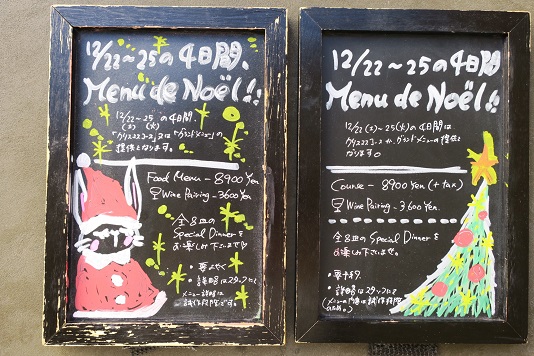 12/22~25の4日間、
Menu de Noël!!
12/22~25の4日間、
(土) (火)
「クリスマスコース」又は「グランドメニュー」の
提供となります。
Food Menu - 8900 Yen
Wine Pairing - 3600 Yen
全8皿の
Special Dinnerを
お楽しみ下さいませ
・要よやく
・詳細はスタッフまで
メニュー詳細は
試作段階です。
12/22~25の4日間
Menu de Noël!!
12/22(土)~25(火)の4日間は
クリスマスコースか、グランドメニューの提供と
なります。
Course - 8900 Yen (+ tax)
Wine Pairing - 3600 Yen.
全8皿のSpecial Dinnerを
お楽しみ下さいませ。
・要予約
・詳細はスタッフまで